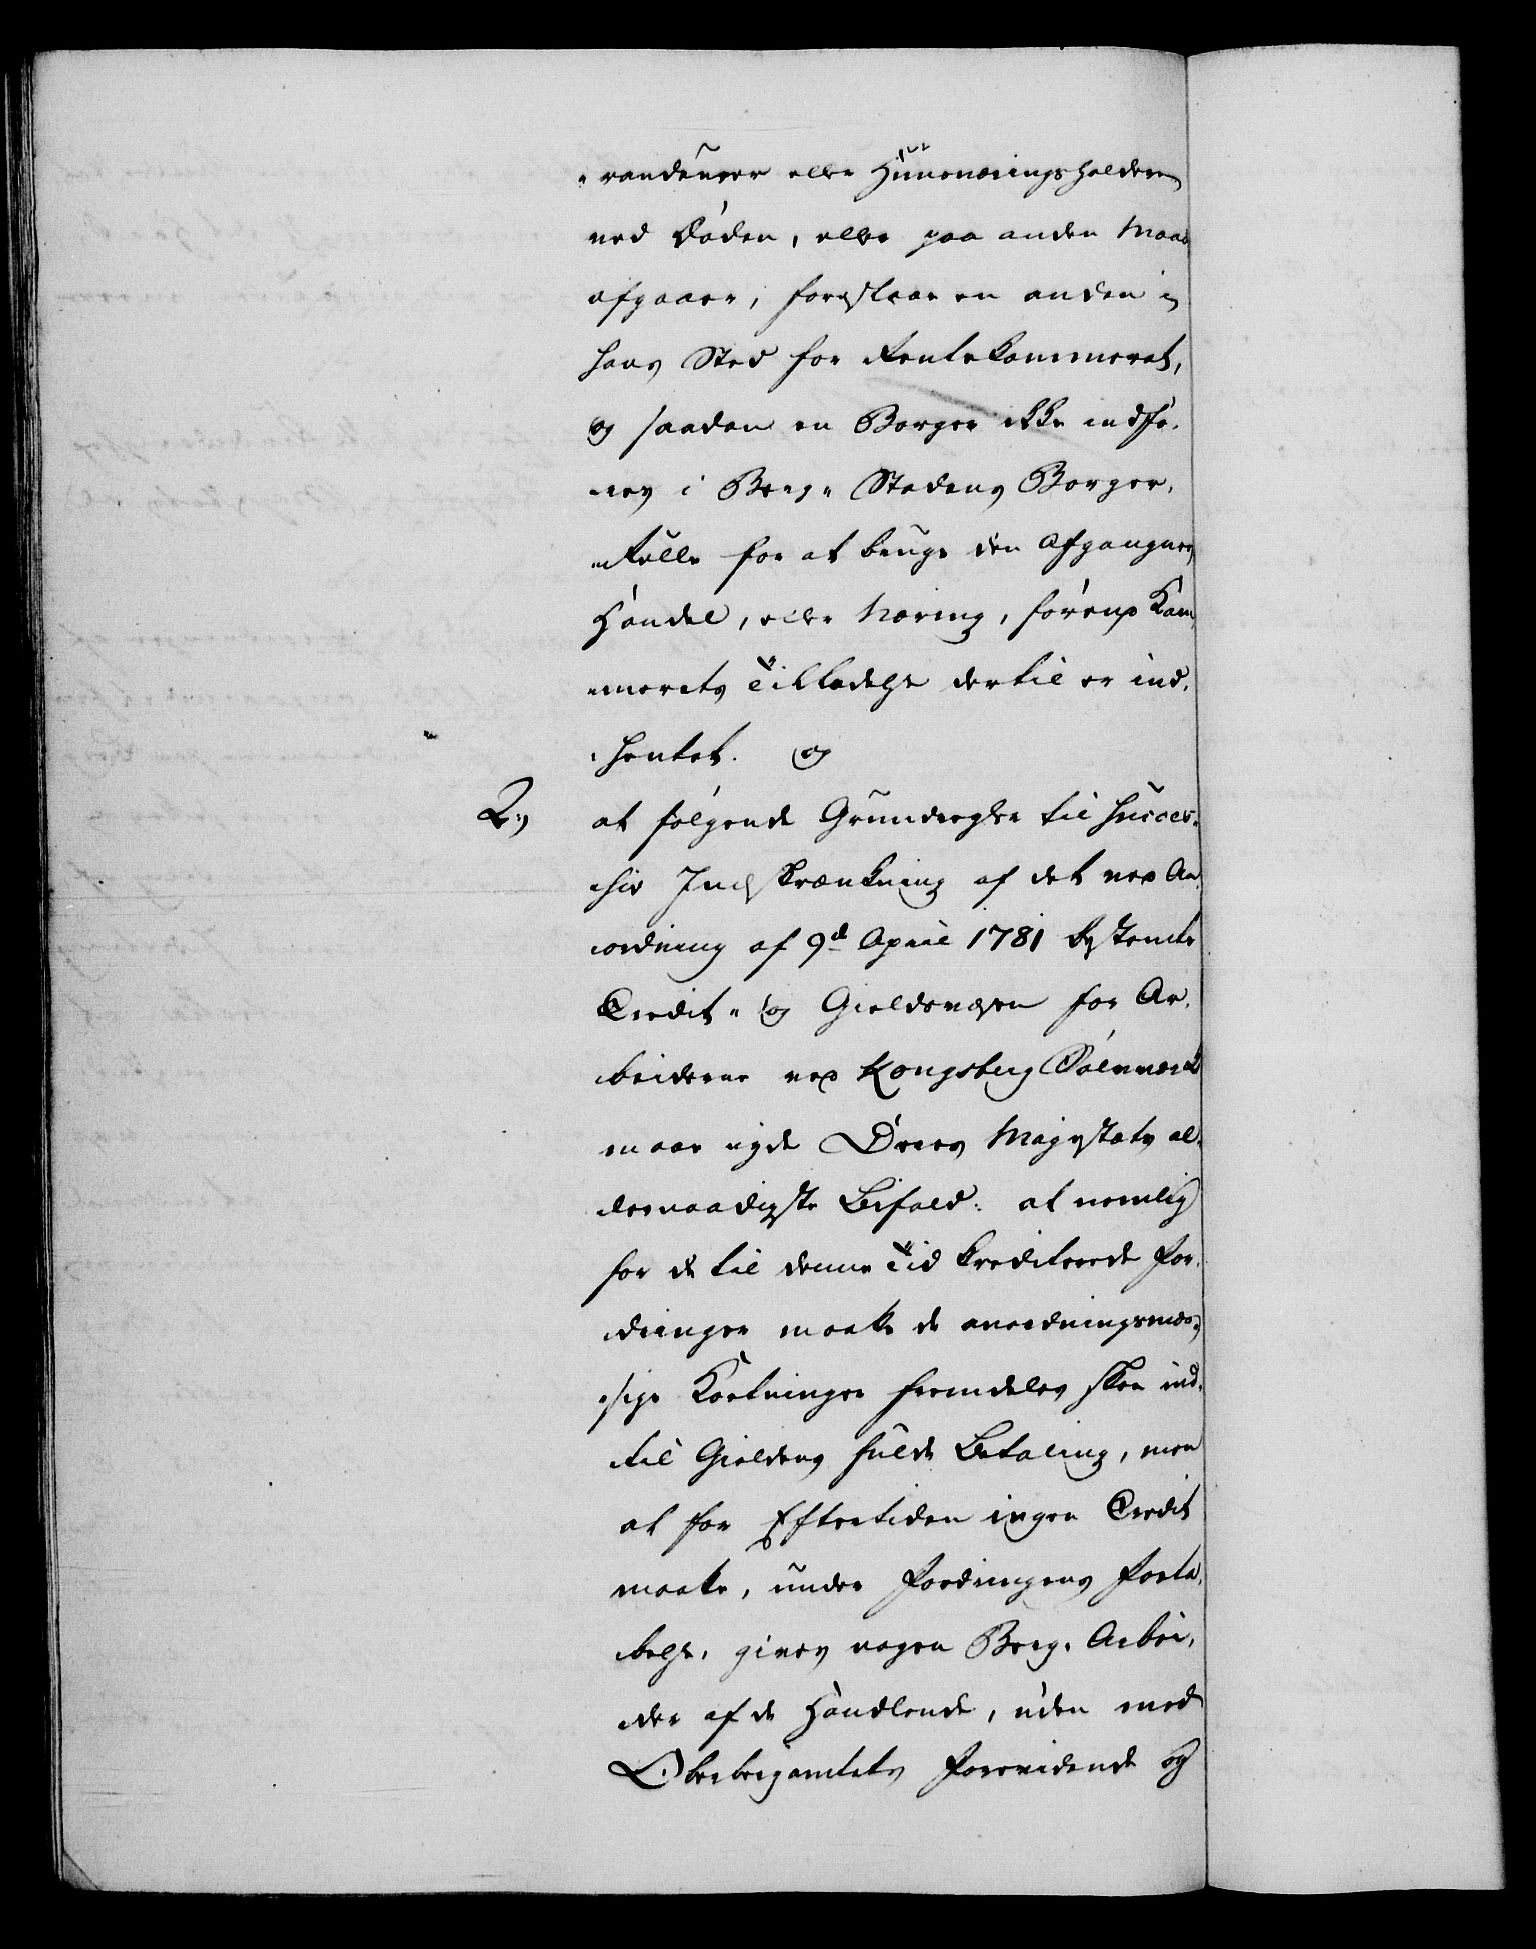 randeurer eller Huusnæringsholderen
ved Døden, eller paa anden Maade
afgaaer, foreslaae en anden i
hans Sted for Rentekammeret,
og saadan en Borger ikke indfø-
res i Berg-Stadens Borger-
Rulle for at bruge den Afgangnes
Handel, eller Næring, førend Kam-
merets Tilladelse dertil er ind-
hentet. og
2.) at følgende Grundregler til succes-
siv Indskrænkning af det ved An-
ordning af 9d April 1781 bestemte
Credit- og Gieldsvæsen for Ar-
beiderne ved Kongsberg Sølvværk
maae nyde Deres Majestæts al-
lernaadigste Bifald: at nemlig
for de til denne Tid krediterede For-
dringer maatte de anordningsmæs-
sige Kortninger fremdeles skee ind-
til Gieldens fulde Betaling, men
at for Eftertiden ingen Credit
maatte, under Fordringens Forta-
belse, gives nogen Berg-Arbei-
der af de Handlende, uden med
Oberbergamtets Forevidende og